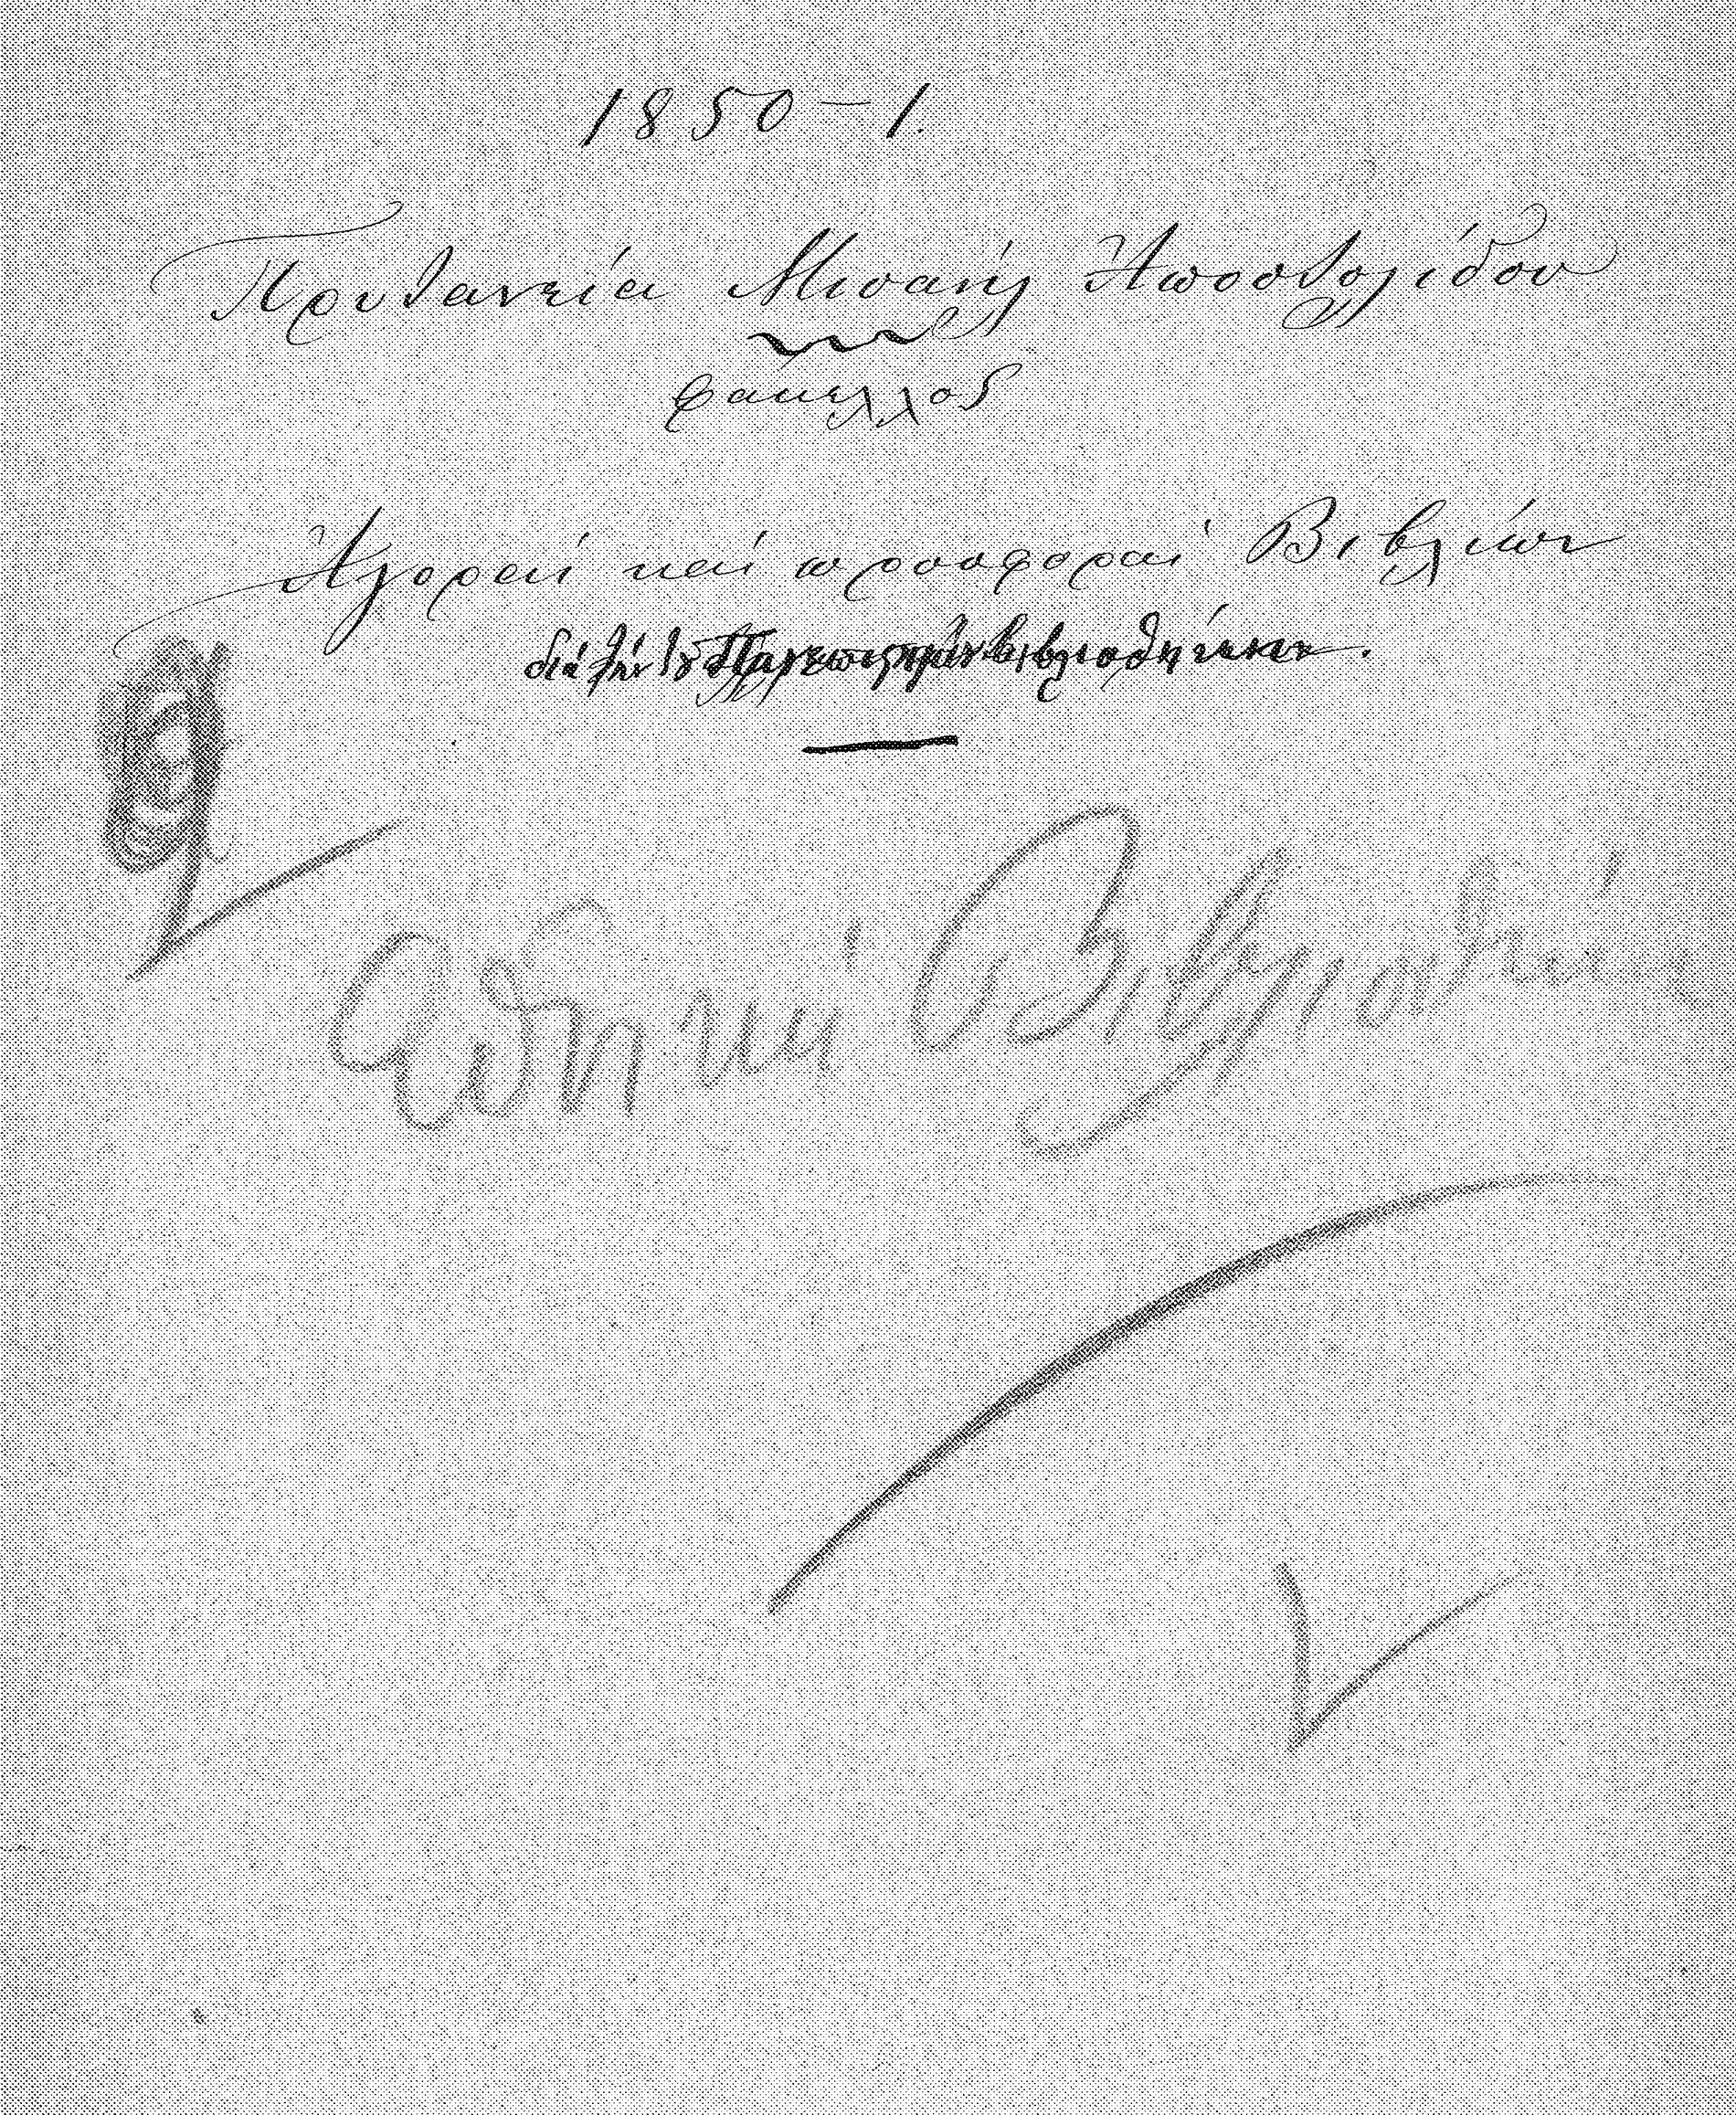 1850 – 1.
Πρυτανεία Μισαήλ Ἀποστολίδου
φάκελλος
Ἀγοραί καί προσφοραί Βιβλίων
διά τήν τοῦ Πανεπιστημίου βιβλιοθήκην.
Βιβλιοθήκη